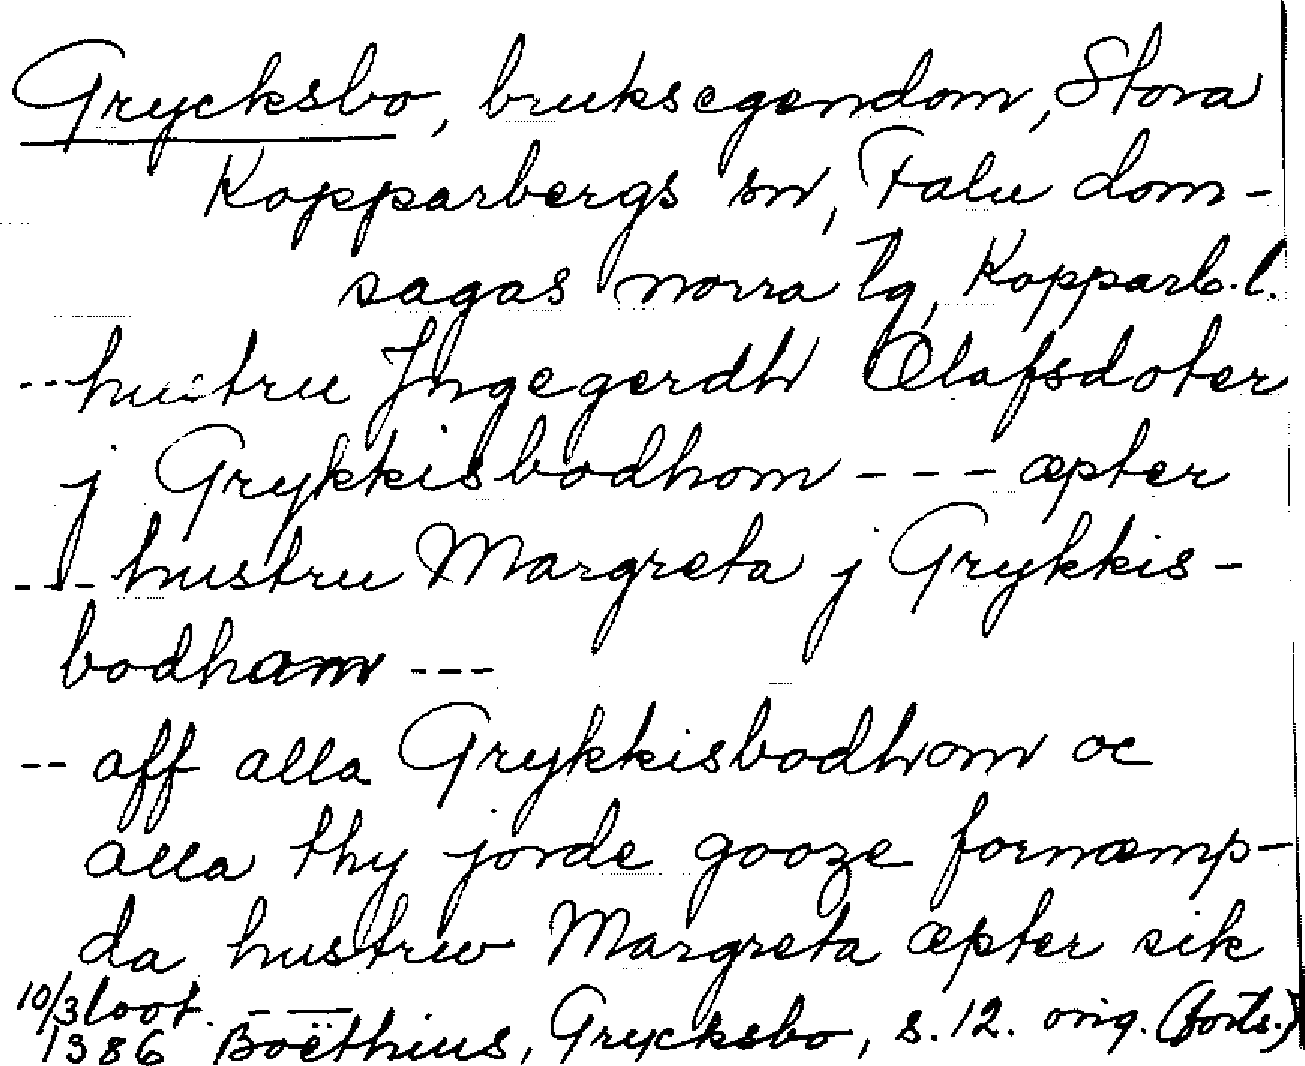 Grycksbo, bruksegendom, Stora
Kopparbergs sn, Falu dom-
sagas norra tg, Kopparb.l.
-- hustru Jngegerdh Ølafsdoter
j Grykkisbodhom --- æpter
--- hustru Margreta j Grykkis-
bodham ---
-- aff alla Grykkisbodhom oc
alla thy jorde gooze fornæmp-
da hustrw Margreta æpter sik
10/3 loot. - —
1386 Boëthius, Grycksbo, s.12. orig. (forts.)